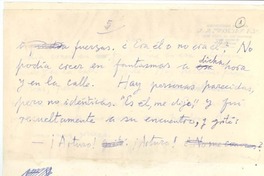 5
fuerzas. ¿Era él o no era él? No
podía creer en fantasmas a dicha hora
y en la calle. Hay personas parecidas,
pero no idénticas. "Es él, me dije". Y fui
resueltamente a su encuentro, y grité:
— ¡Arturo! ¡Arturo!